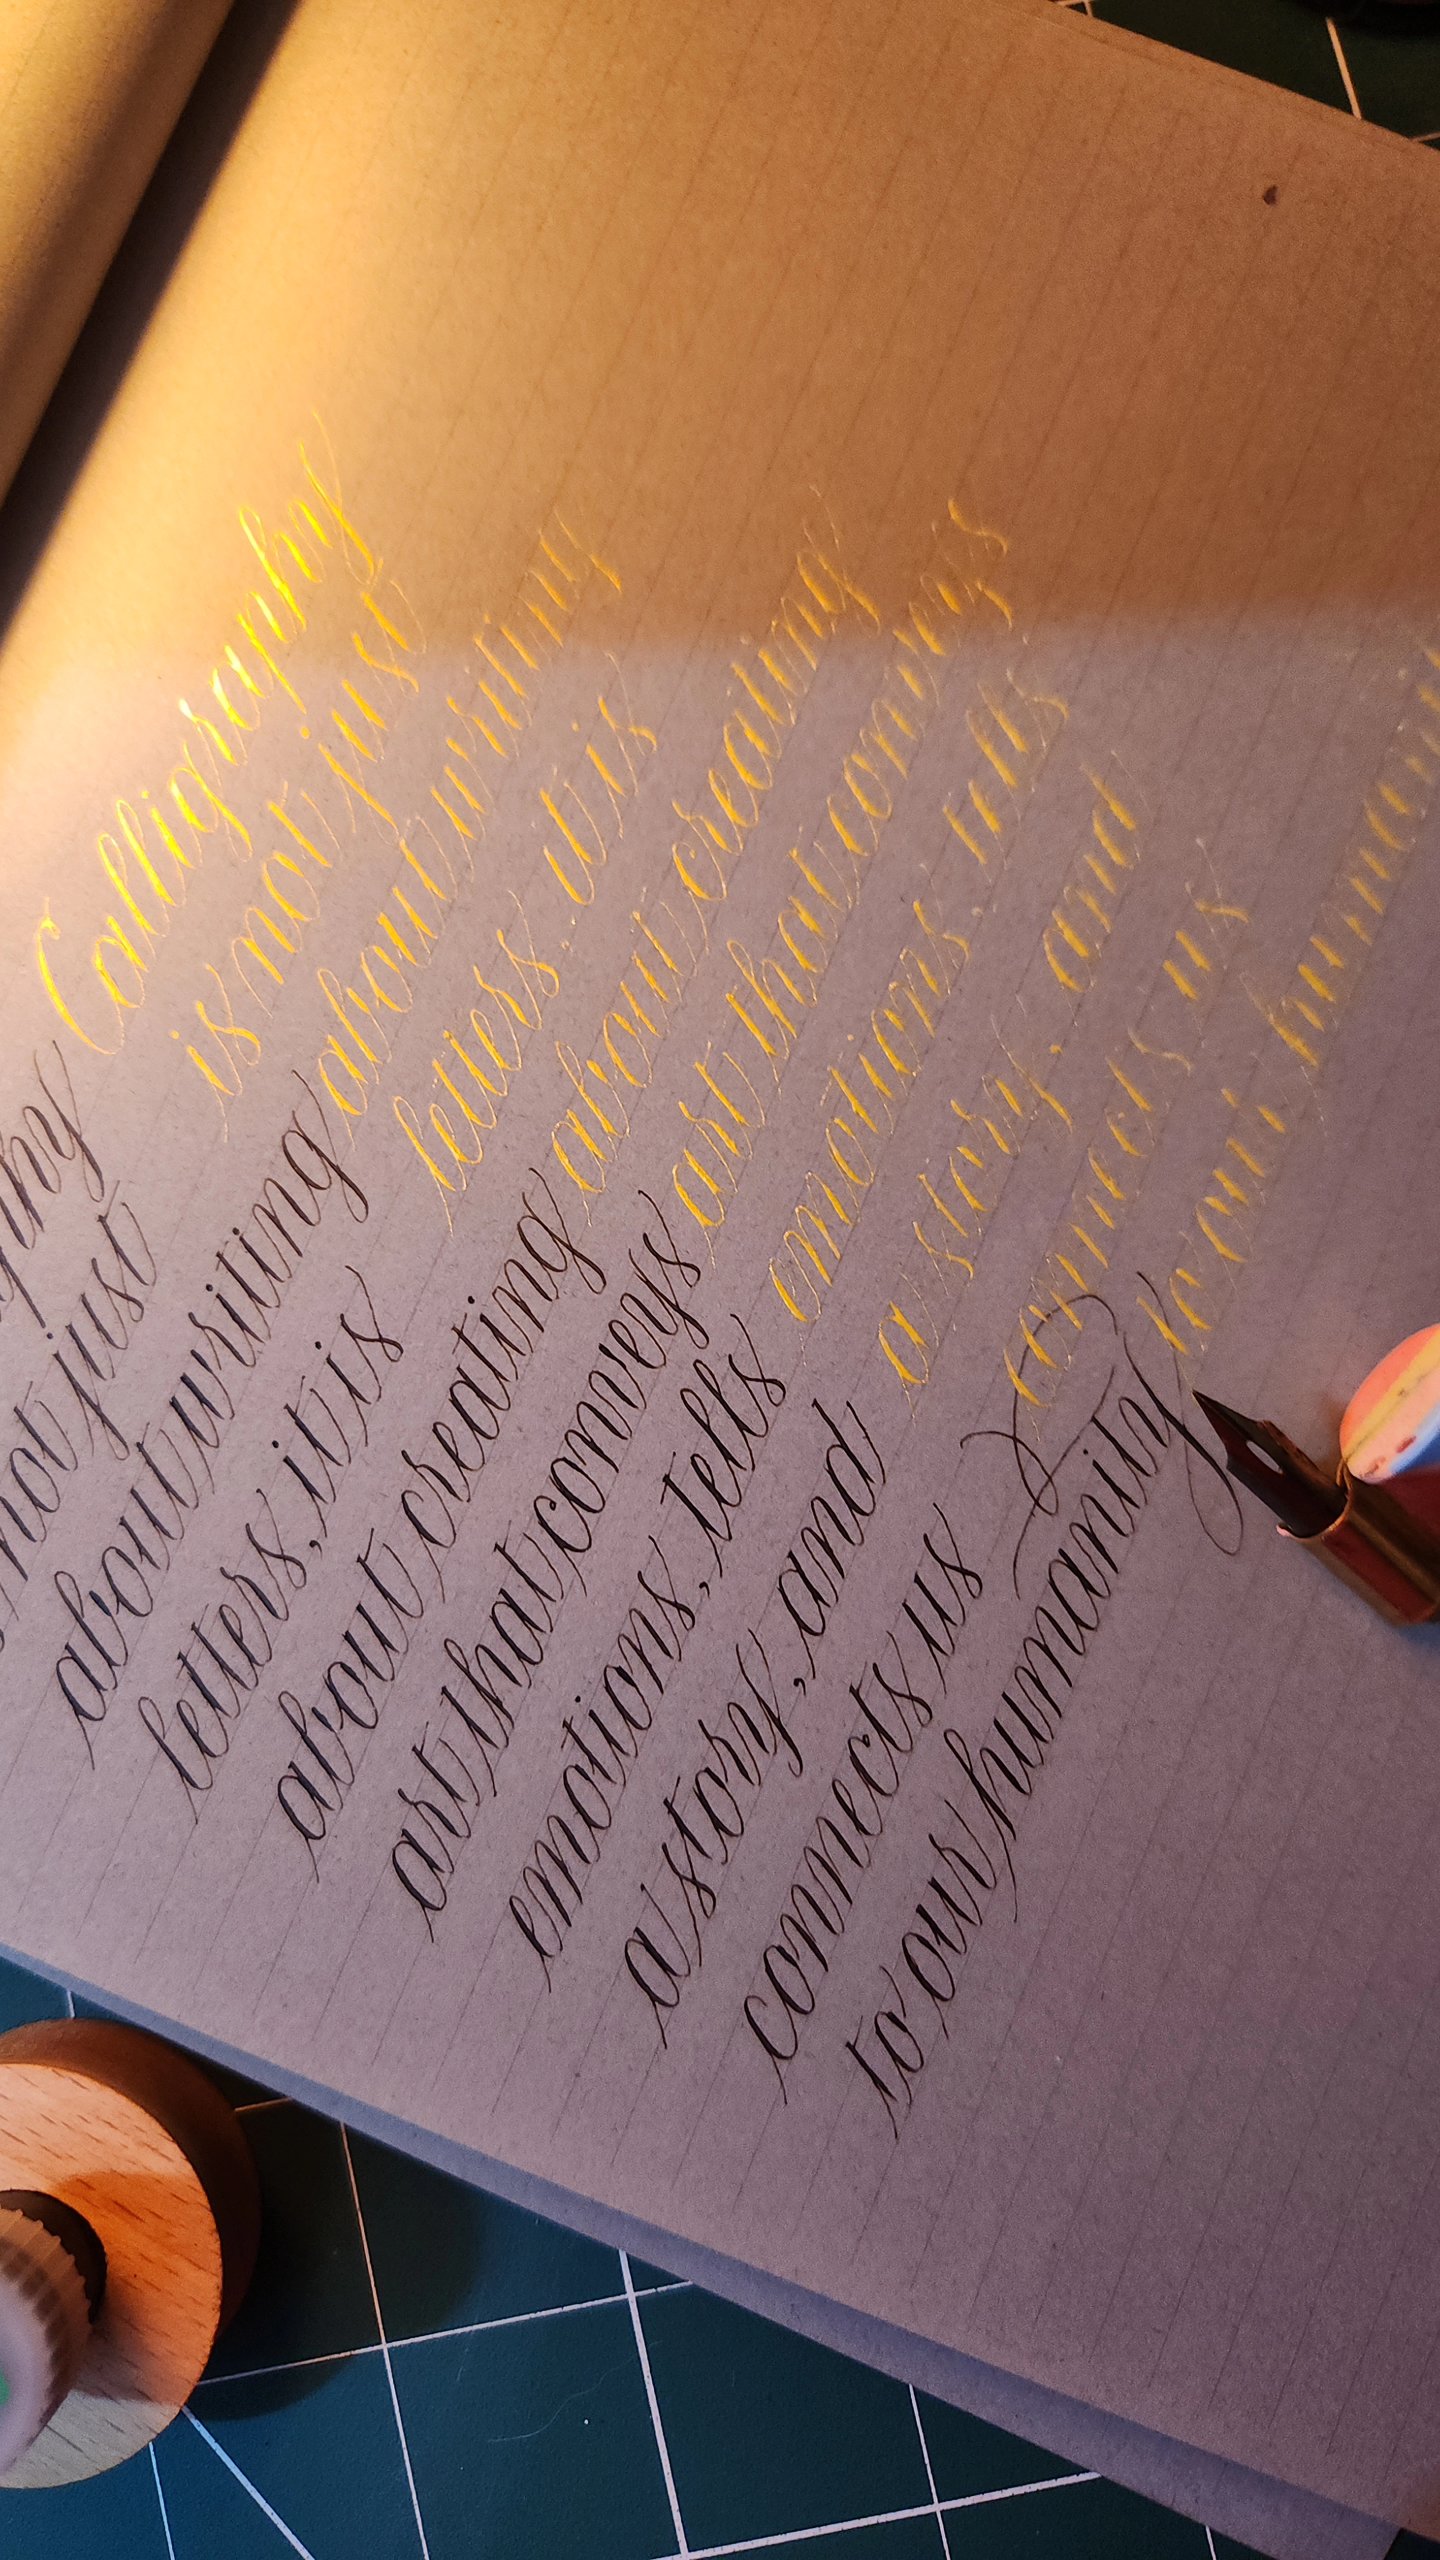 not just
about writing
letters, it is
about creating
art that conveys
emotions, tells
a story, and
connects us
to our humanity
Calligraphy
is not just
about writing
letters, it is
about creating
art that conveys
emotions, tells
a story, and
connects us
to our